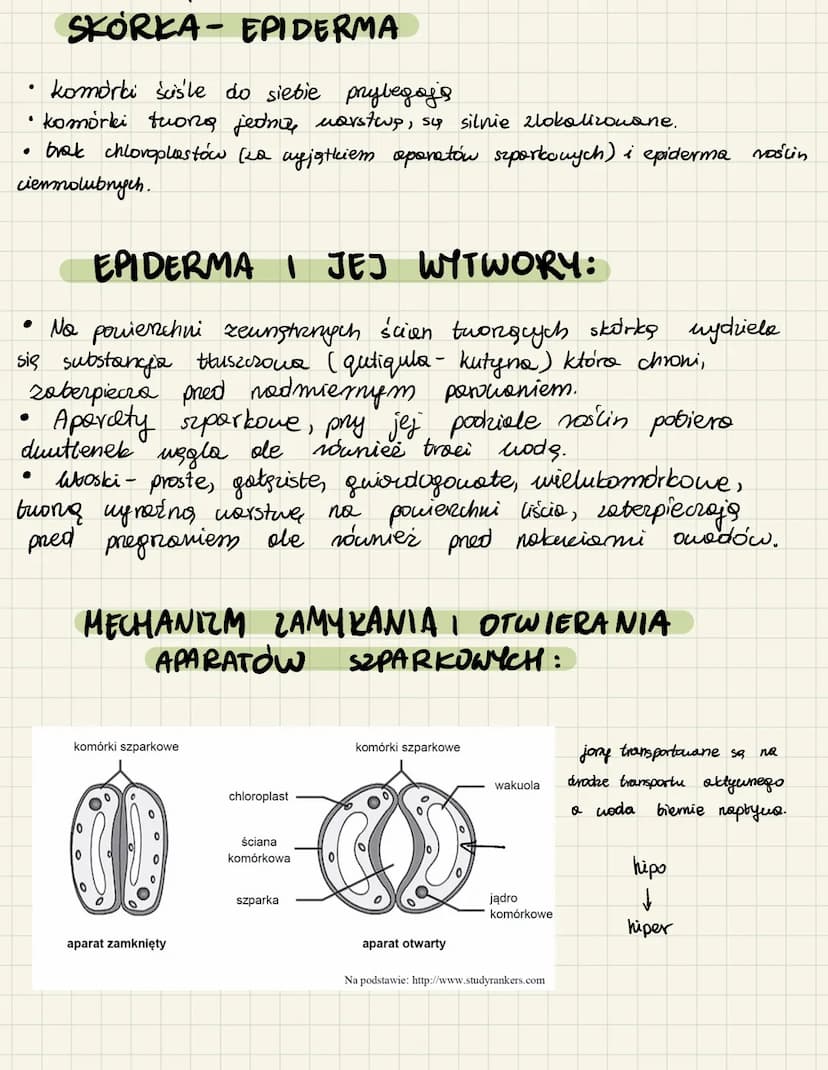 SKÓRKA - EPIDERMA
• komórki ściśle do siebie przylegają
• komórki tworzą jedną warstwę, są silnie zlokalizowane.
• brak chloroplastów (za wyjątkiem aparatów szparkowych) i epiderma roślin
ciemnolubnych.
EPIDERMA I JEJ WYTWORY:
• Na powierzchni zewnętrznych ścian tworzących skórkę wydziela
się substancja tłuszczowa (qutiqula - kutyna) która chroni,
zabezpiecza przed nadmiernym parowaniem.
• Aparaty szparkowe, przy jej podziale roślin pobiera
dwutlenek węgla ale również traci wodę.
• Włoski - proste, gałęziste, gwiazdogowate, wielukomórkowe,
tworzą wyraźną warstwę na powierzchni liścia, zabezpieczają
przed przegrzaniem ale również przed nakłuciami owadów.
MECHANIZM ZAMYKANIA I OTWIERANIA
APARATÓW SZPARKOWYCH:
komórki szparkowe
komórki szparkowe
chloroplast
wakuola
ściana
komórkowa
szparka
jądro
komórkowe
aparat zamknięty
aparat otwarty
Na podstawie: http://www.studyrankers.com
jony transportowane są na
drodze transportu aktywnego
a woda biernie napływa.
hipo
↓
hiper